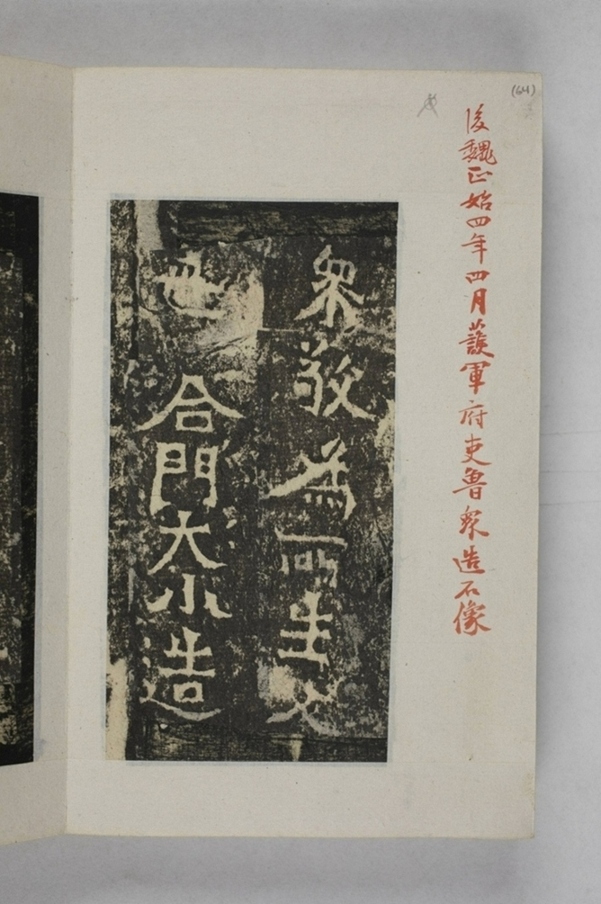 (64)
後魏正始四年四月護軍府吏魯眾造石像
眾敬為所生父
世 合門大小造